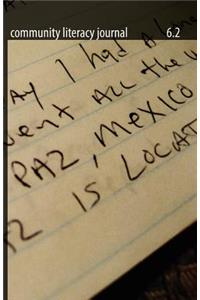 community literacy journal 6.2
AY I HAD A
WENT ALL THE
PAZ, MEXICO
IS LOCAT